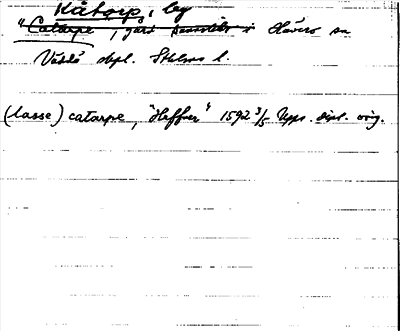 Kåtorp, by
"Catarpe, gård Häverö sn
Väddö skpl. Sthlms l.
(lasse) catarpe, "Heffner" 1592 3/5 Upps. dipl. orig.